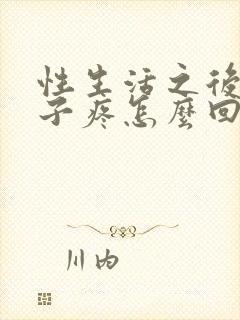 性生活之後
子疼怎麼回
川内